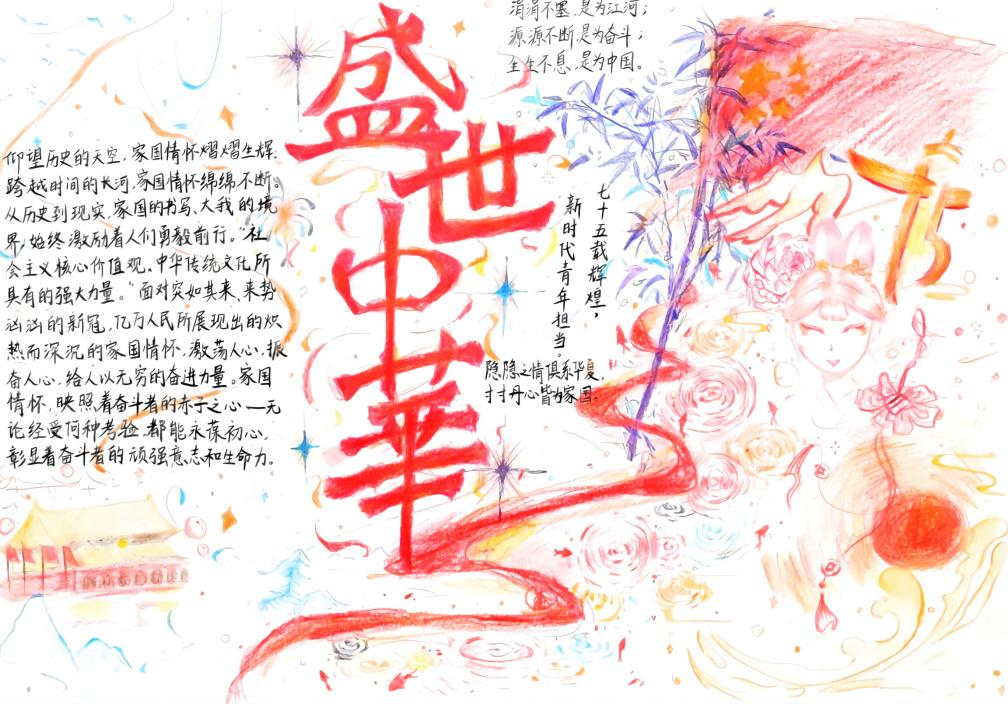 盛世中華
涓涓不塞，是为江河；
源源不断，是为奋斗；
生生不息，是为中国。
仰望历史的天空，家国情怀熠熠生辉；
跨越时间的长河，家国情怀绵绵不断。
从历史到现实，家国的书写、大我的境
界，始终激励着人们勇毅前行。“社
会主义核心价值观、中华传统文化所
具有的强大力量。”面对突如其来、来势
汹汹的新冠，亿万人民所展现出的炽
热而深沉的家国情怀，激荡人心，振
奋人心，给人以无穷的奋进力量。家国
情怀，映照着奋斗者的赤子之心—无
论经受何种考验，都能永葆初心，
彰显着奋斗者的顽强意志和生命力。
七十五载辉煌，
新时代青年担当。
隐隐之情俱系华夏，
寸寸丹心皆为家国。
75